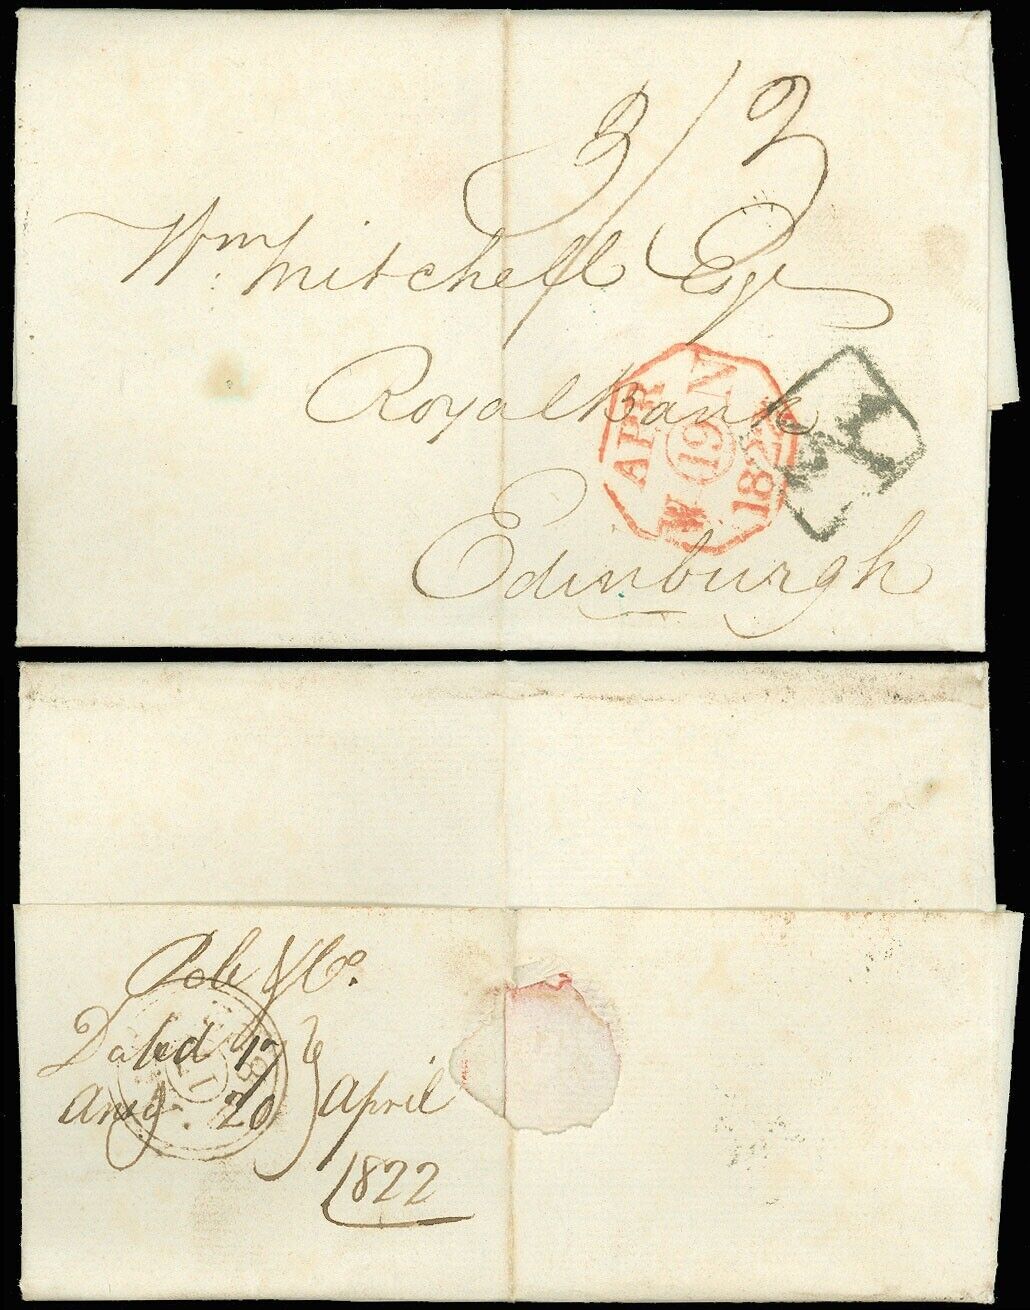 3/3
Wm. Mitchell Esqr
Royal Bank
Edinburgh
APR
19 N
1822
& Co.
Dated 17
Ansd. 20
April
1822